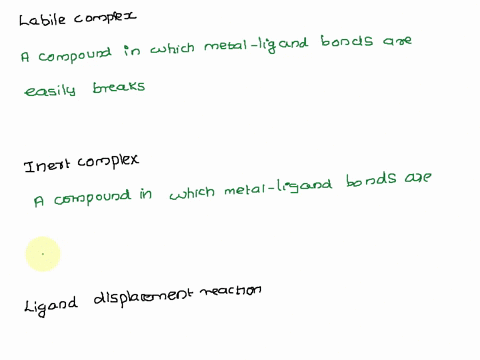 Labile complex
A compound in which metal-ligand bonds are
easily breaks
Inert complex
A compound in which metal-ligand bonds are
Ligand displacement reaction